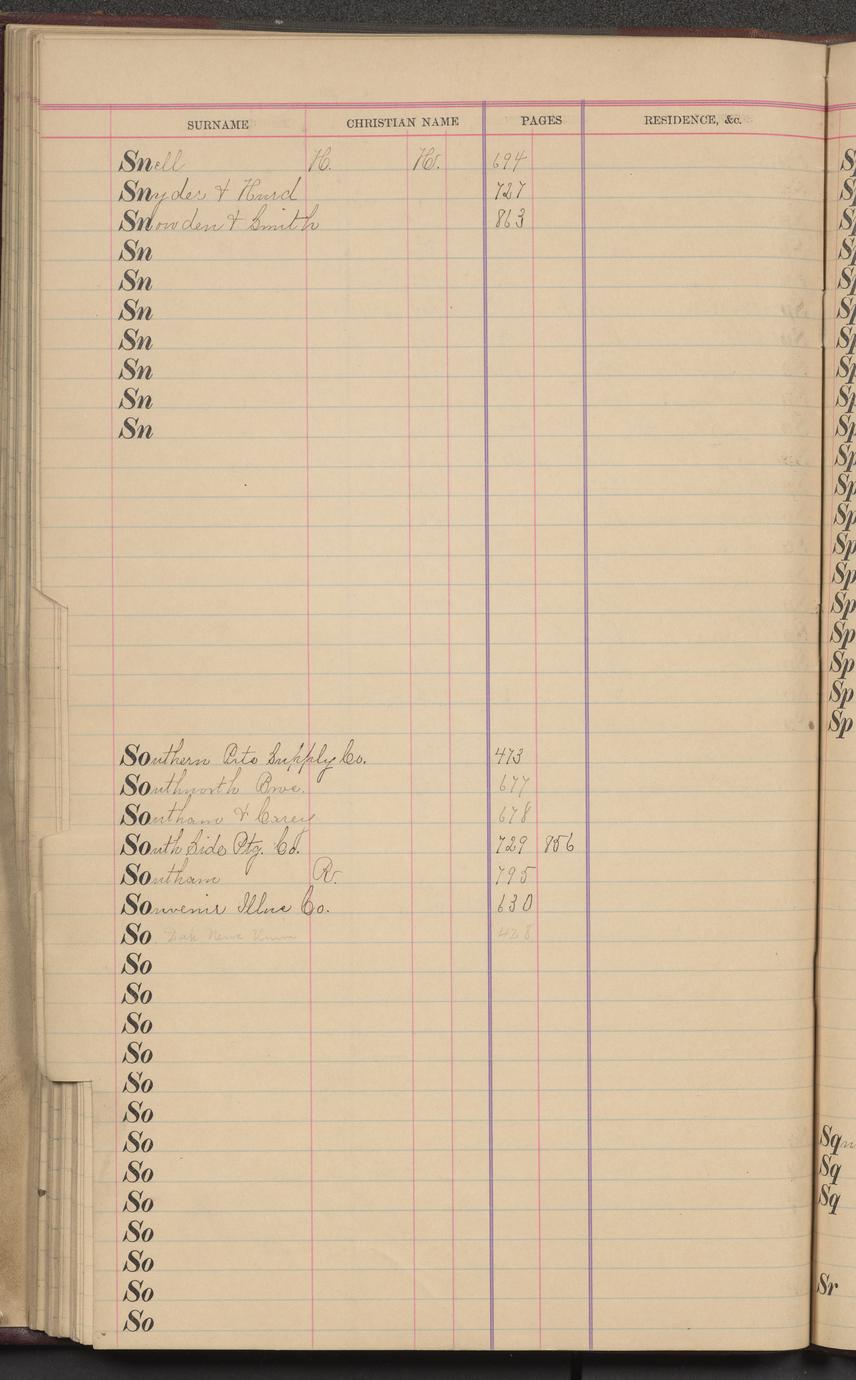 SURNAME CHRISTIAN NAME PAGES RESIDENCE, &c.
Snell H. W. 694
Snyder & Hurd 727
Snowden & Smith 863
Sn
Sn
Sn
Sn
Sn
Sn
Sn
Southern Ptg Supply Co. 473
Southworth Bros. 677
Southam & Carey 678
South Side Ptg. Co. 729 856
Southam R. 795
Souvenir Illus Co. 630
So. Dak News Union 428
So
So
So
So
So
So
So
So
So
So
So
So
So
Sp
Sp
Sp
Sp
Sp
Sp
Sp
Sp
Sp
Sp
Sp
Sp
Sp
Sp
Sp
Sp
Sp
Sp
Sp
Sp
Sq
Sq
Sq
Sr